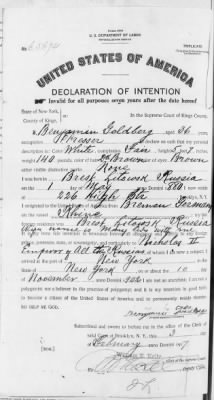 U. S. DEPARTMENT OF LABOR
TRIPLICATE
UNITED STATES OF AMERICA
DECLARATION OF INTENTION
Invalid for all purposes seven years after the date hereof
State of New York,
County of Kings,
In the Supreme Court of Kings County.
I, Benjamin Goldberg, aged 36 years,
occupation Presser, do declare on oath that my personal
description is: Color White, complexion Fair, height 5 feet 8 inches,
weight 140 pounds, color of hair Brown, color of eyes Brown
other visible distinctive marks None
I was born in Brest Litowsk Russia
on the 1 day of May, anno Domini 1880; I now reside
at 226 High St
I emigrated to the United States of America from Bremen Germany
on the vessel Rhine; my last
foreign residence was Brest Litowsk Russia
prince, potentate, state, or sovereignty, and particularly to Nicholas II
Emperor of All the Russias, of whom I am now a subject;
I arrived at the port of New York, in the
State of New York, on or about the 10 day
of November, anno Domini
polygamist nor a believer in the practice of polygamy; and it is my intention in good faith
to become a citizen of the United States of America and to permanently reside therein:
SO HELP ME GOD.
Benjamin Goldberg
Subscribed and sworn to before me in the office of the Clerk of
said Court at Brooklyn, N. Y., this 3 day
of February, anno Domini 1917